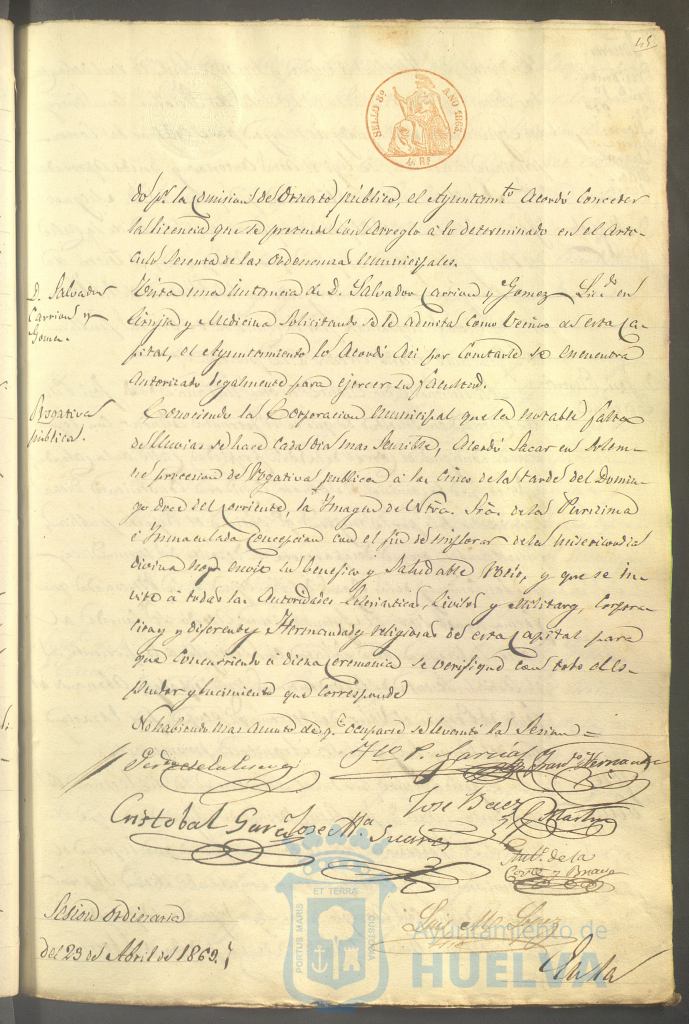 45
SELLO 8º AÑO 1863.
4 Rs
do pr. la Comision de Ornato público, el Ayuntamto. Acordó Conceder
la licencia que se pretende con arreglo á lo determinado en el Arti-
culo Sesenta de las Ordenanzas Municipales.
D. Salvador
Carrion y
Gomez.
Vista una instancia de D. Salvador Carrion y Gomez Licdo. en
Cirujia y Medicina Solicitando se le admita como Vecino de esta Ca-
pital, el Ayuntamiento lo Acordó Asi por Constarle se encuentra
Autorizado legalmente para ejercer su facultad.
Rogativa
pública.
Conociendo la Corporacion Municipal que la notable falta
de lluvias se hace cada dia mas Sensible, Acordó Sacar en Solem-
ne procesion de Rogativa publica á las Cinco de la tarde del Domin-
go doce del corriente, la Ymagen de Ntra. Sra. de la Purizima
é Ynmaculada Concepcion con el fin de implorar de la misericordia
divina nos envie su benefico y Saludable Rocio, y que se in-
vite á todas las Autoridades Eclesiasticas, Civiles y Militares, Corpora-
ciones y diferentes Hermandades religiosas de esta Capital para
que Concurriendo á dicha Ceremonia se verifique con todo el es-
plendor y lucimiento que corresponde
No habiendo mas asunto de qe. ocuparse se levantó la Sesion =
Fco P. Garcia Franco. Hernandez
Cristobal Garcia Jose Ma Suarez Jose Baez Martin
Antº. de la
Corte y Bravo
Sesion ordinaria
del 23 de Abril de 1863.
Luis Mª Lopez
PORTUS MARIS ET TERRÆ CUSTODIA
Ayuntamiento de
HUELVA